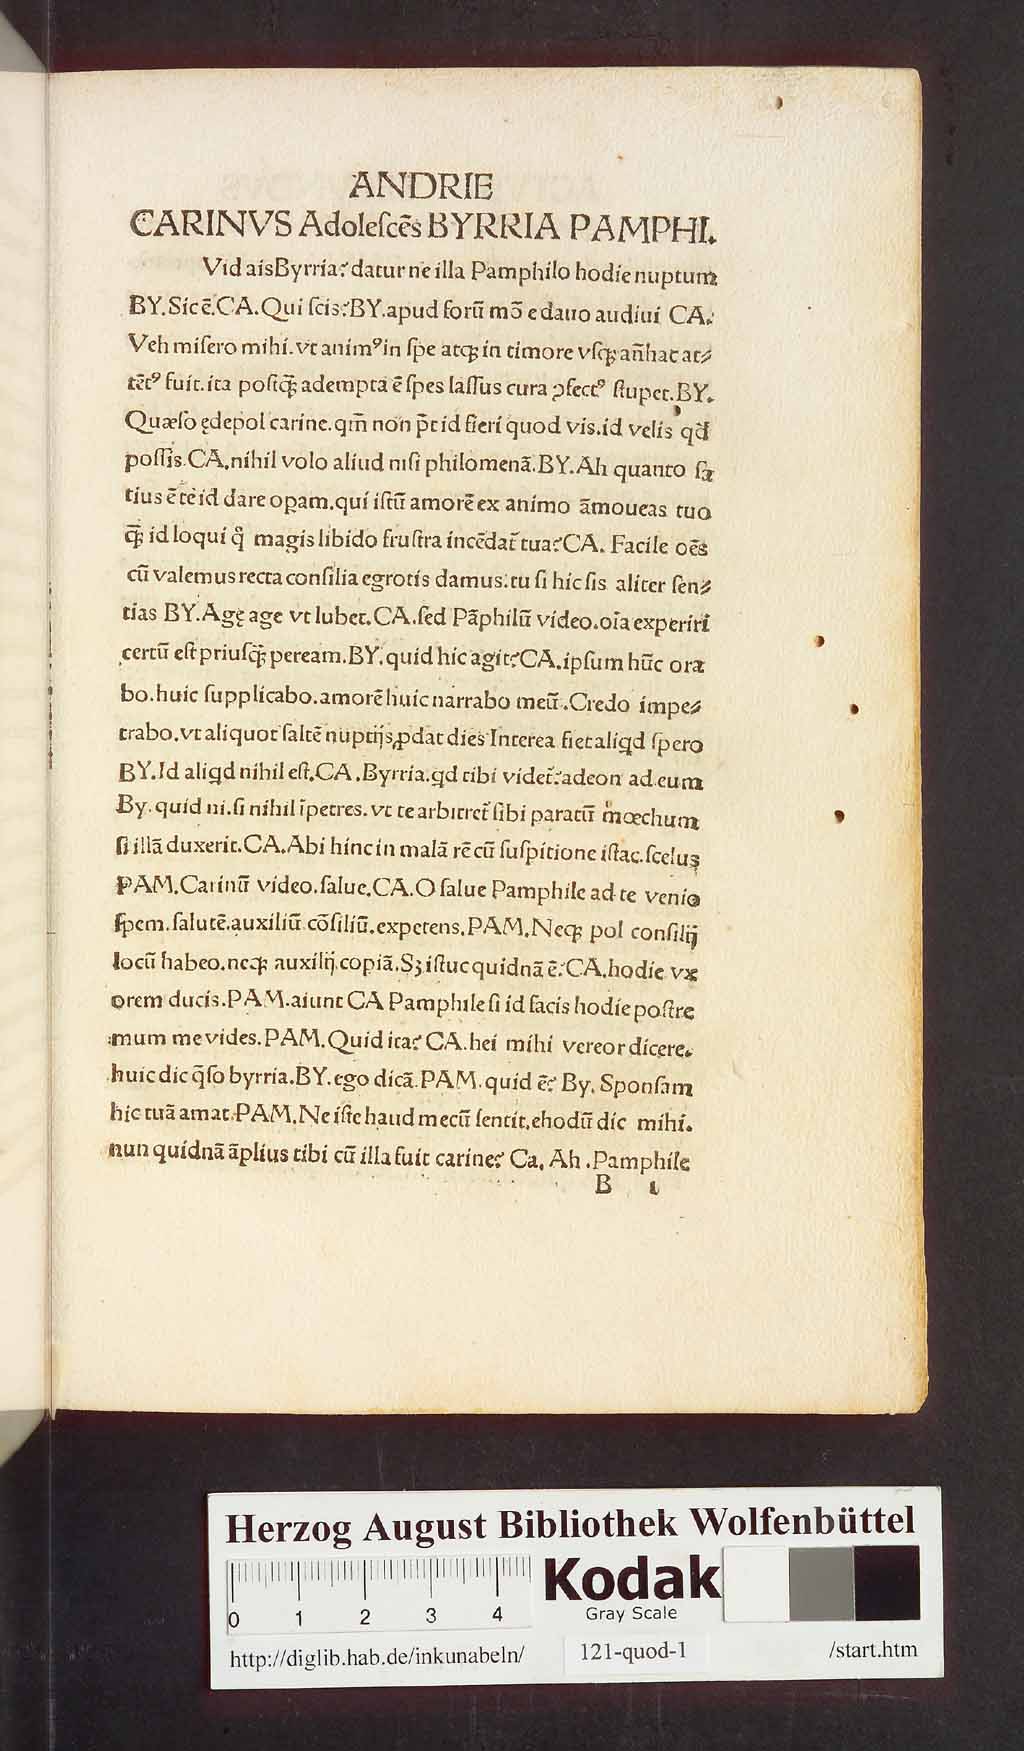 ANDRIE
CARINVS Adoleſcēs BYRRIA PAMPHI.
Vid ais Byrria? datur ne illa Pamphilo hodie nuptum
BY. Sic ē. CA. Qui ſcis? BY. apud forū mō e dauo audiui CA.
Veh miſero mihi. vt animꝰ in ſpe atqꝫ in timore vſqꝫ an̄hac at⸗
tētꝰ fuit. ita poſtqꝫ̄ adempta ē ſpes laſſus cura ꝯfectꝰ ſtupet. BY.
Quæſo ędepol carine. qm̄ non p̄t id fieri quod vis. id velis qd̄
poſſis. CA. nihil volo aliud niſi philomenā. BY. Ah quanto ſa
tius ē te id dare operam. qui iſtū amorē ex animo āmoueas tuo
qꝫ̄ id loqui q̊ magis libido fruſtra incēdat᷑ tua? CA. Facile oēs
cū valemus recta conſilia egrotis damus: tu ſi hic ſis aliter ſen⸗
tias BY. Age age vt lubet. CA. ſed Pāphilū video. oīa experiri
certū eſt priuſqꝫ̄ peream. BY. quid hic agit? CA. ipſum hūc ora
bo. huic ſupplicabo. amorē huic narrabo meū. Credo impe⸗
trabo. vt aliquot ſaltē nuptijs ꝓdat dies Interea fiet aliqd ſpero
BY. Id aliqd nihil eſt. CA. Byrria. qd tibi videt᷑? adeon ad eum
By. quid ni. ſi nihil īpetres. vt te arbitret᷑ ſibi paratū mœchum
ſi illā duxerit. CA. Abi hinc in malā rē cū ſuſpitione iſtac. ſcelus
PAM. Carinū video. ſalue. CA. O ſalue Pamphile ad te venio
ſpem. ſalutē. auxiliū cōſiliū. expetens. PAM. Neqꝫ pol conſilij
locū habeo. neqꝫ auxilij. copiā. Sꝫ iſtuc quidnā ē? CA. hodie vx
orem ducis. PAM. aiunt CA Pamphile ſi id facis hodie poſtre
mum me vides. PAM. Quid ita? CA. hei mihi vereor dicere.
huic dic q̄ſo byrria. BY. ego dicā. PAM. quid ē? By. Sponſam
hic tuā amat. PAM. Ne iſte haud mecū ſentit. ehodū dic mihi.
nun quidnā āplius tibi cū illa fuit carine? Ca. Ah. Pamphile
B i
Herzog August Bibliothek Wolfenbüttel
0 1 2 3 4
Kodak
Gray Scale
http://diglib.hab.de/inkunabeln/ 121-quod-1 /start.htm